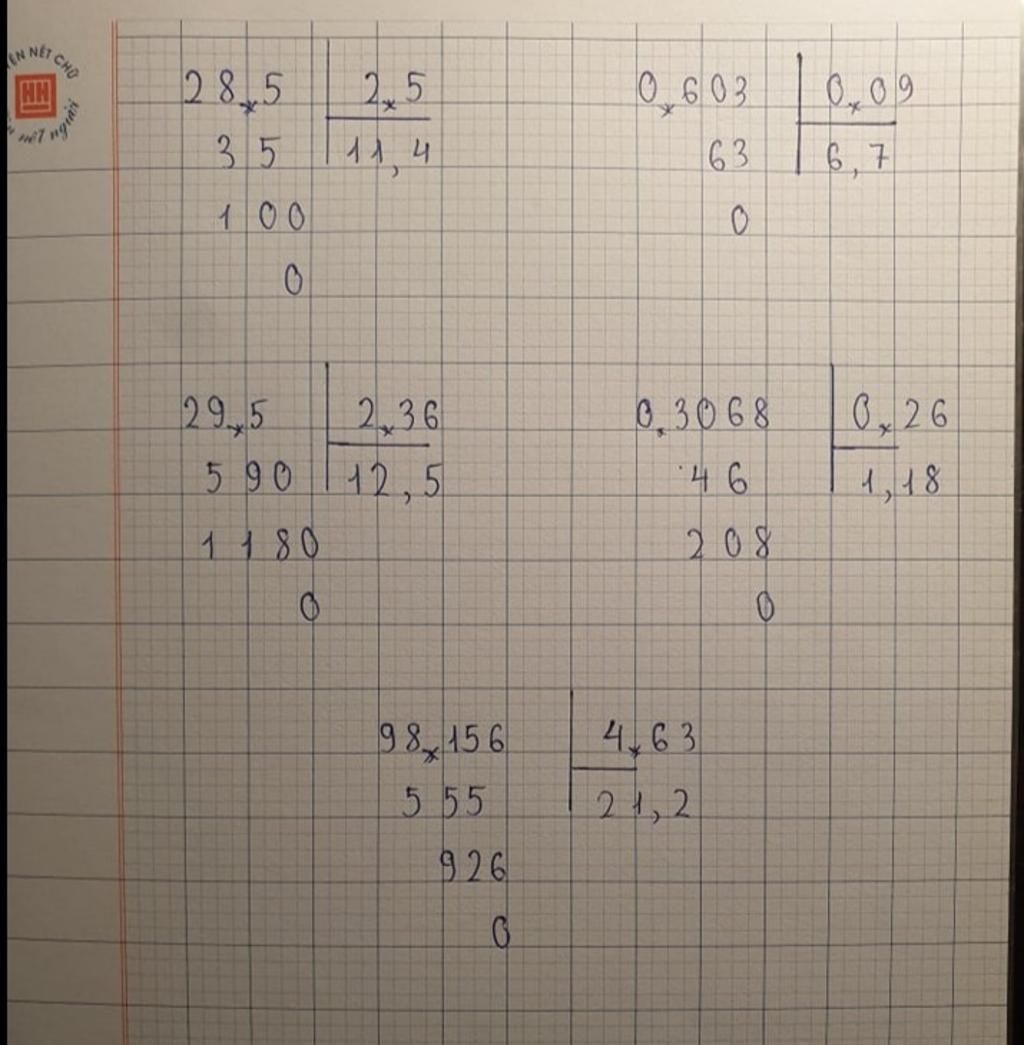 ÊN NÉT CHỮ
HH
NẾT NGƯỜI
28,5 2,5
35 11,4
100
0
0,603 0,09
63 6,7
0
29,5 2,36
590 12,5
1180
0
0,3068 0,26
46 1,18
208
0
98,156 4,63
555 21,2
926
0